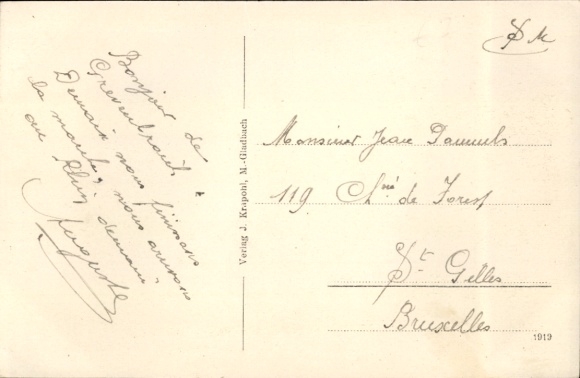 Bonjour de
Grevenbroich,
Demain nous finissons
la marche, nous arrivons
au Rhin demain
Auguste
Verlag J. Krapohl, M.-Gladbach
S M
Monsieur Jean Pauwels
119 Ch. de Forest
St Gilles
Bruxelles
1919